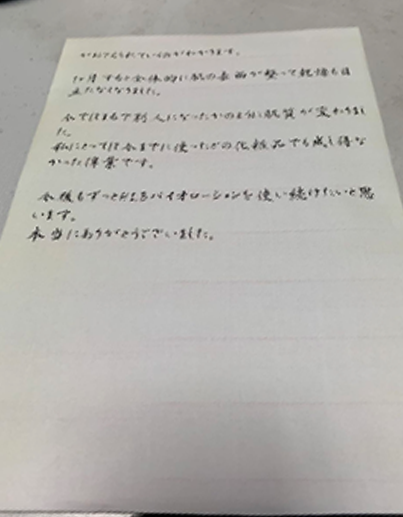 がおさえられていくのがわかります。
1ヶ月すると全体的に肌の表面が整って乾燥も目
立たなくなりました。
今ではまるで別人になったかのように肌質が変わりまし
た。
私にとっては今までに使ったどの化粧品でも成し得な
かった偉業です。
今後もずっと バイオローションを使い続けたいと思
います。
本当にありがとうございました。